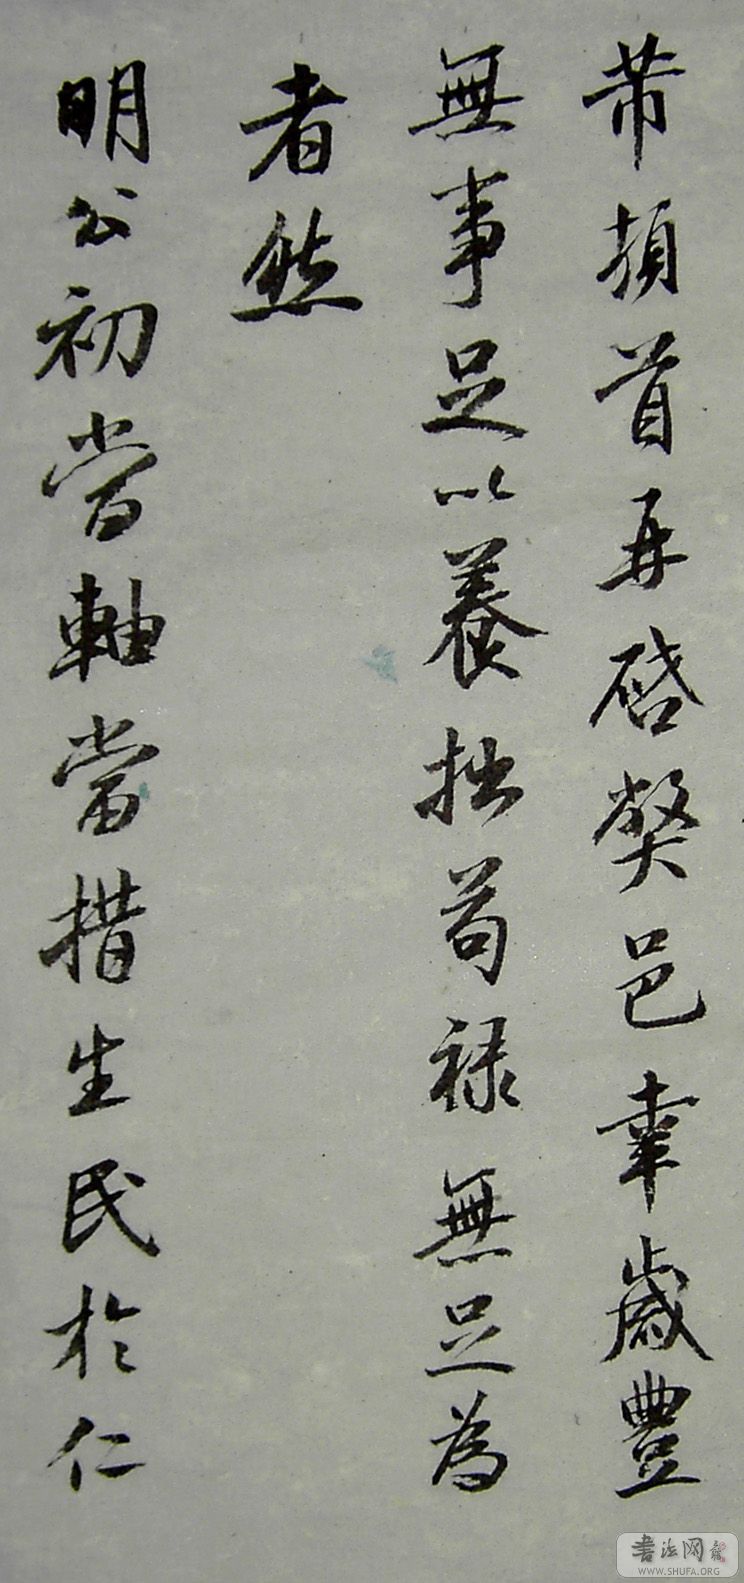 芾頓首再啓弊邑幸歲豐
無事足以養拙苟禄無足爲
者然
明公初當軸當措生民於仁
書法网
WWW.SHUFA.ORG